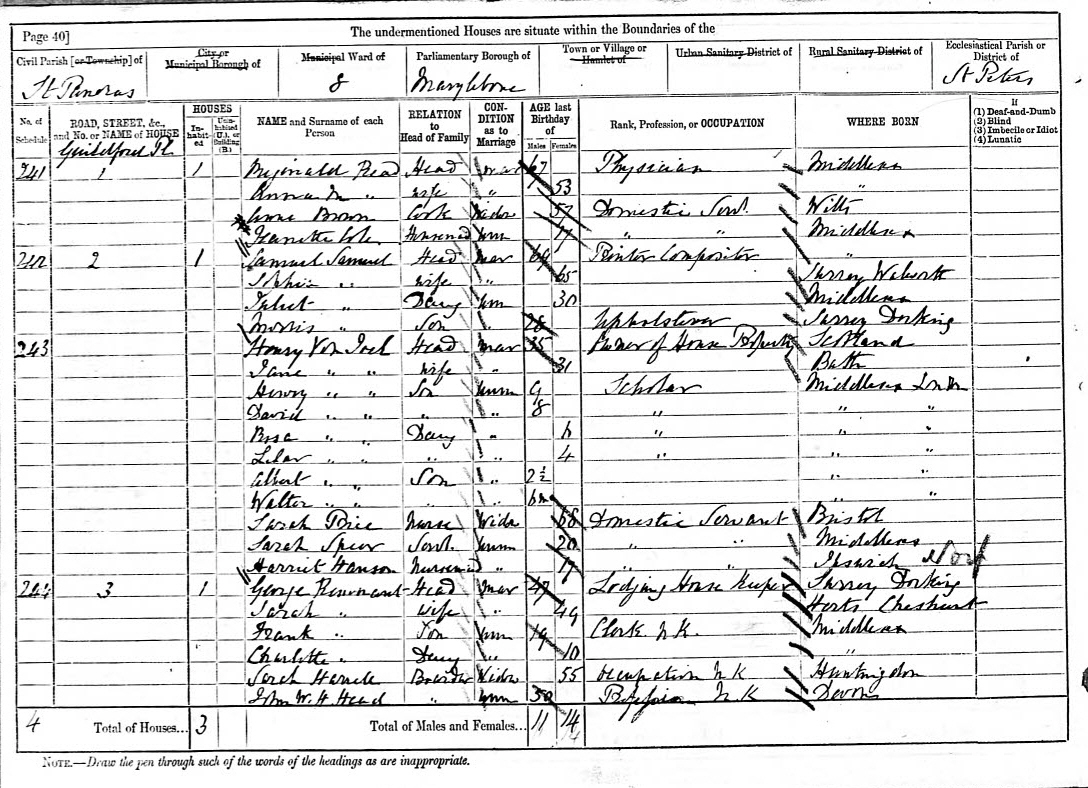 Page 40] The undermentioned Houses are situate within the Boundaries of the
Civil Parish [or Township] of City or Municipal Borough of Municipal Ward of Parliamentary Borough of Town or Village or Hamlet of Urban Sanitary District of Rural Sanitary District of Ecclesiastical Parish or District of
St Pancras 8 Marylebone St Peters
No. of Schedule ROAD, STREET, &c., and No. or NAME of HOUSE HOUSES Inhabited Uninhabited (U.), or Building (B.) NAME and Surname of each Person RELATION to Head of Family CONDITION as to Marriage AGE last Birthday of Males Females Rank, Profession, or OCCUPATION WHERE BORN If (1) Deaf-and-Dumb (2) Blind (3) Imbecile or Idiot (4) Lunatic
Guildford Pl
241 1 1 Reginald Read Head mar 67 Physician Middlesex
Anna M " wife " 53 "
Anne Brown Cook Widow 57 Domestic Servt. Wilts
Housemaid unm " " Middlesex
242 2 1 Samuel Samuel Head mar 69 Printer Compositor "
Sophia " wife " 65 Surrey Walworth
Juliet " Daug unm 30 Middlesex
Morris " Son " 28 Upholsterer Surrey Dorking
243 Henry Von Joel Head mar 35 Owner of House Property Scotland
Jane " " wife " 31 Bath
Henry " " Son unm 9 Scholar Middlesex London
David " " " " 8 " " "
Rosa " " Daug " 6 " " "
Lilar " " " " 4 " " "
Albert " " Son " 2½ " "
Walter " " " " 6m " "
Sarah Price Nurse Widow 58 Domestic Servant Bristol
Sarah Spear Servt. unm 20 " " Middlesex
Harriet Hanson Nursemaid " 17 " " Ipswich
244 3 1 George Head mar 47 Lodging House Keeper Surrey Dorking
Sarah " Wife " 49 Herts Cheshunt
Frank " Son unm 19 Clerk N.K. Middlesex
Charlotte " Daug " 10 "
Sarah Boarder Widow 55 occupation N K Huntingdon
John W. H. Head " unm 50 Profession N.K Devon
4 Total of Houses... 3 Total of Males and Females... 11 14
14
NOTE.—Draw the pen through such of the words of the headings as are inappropriate.